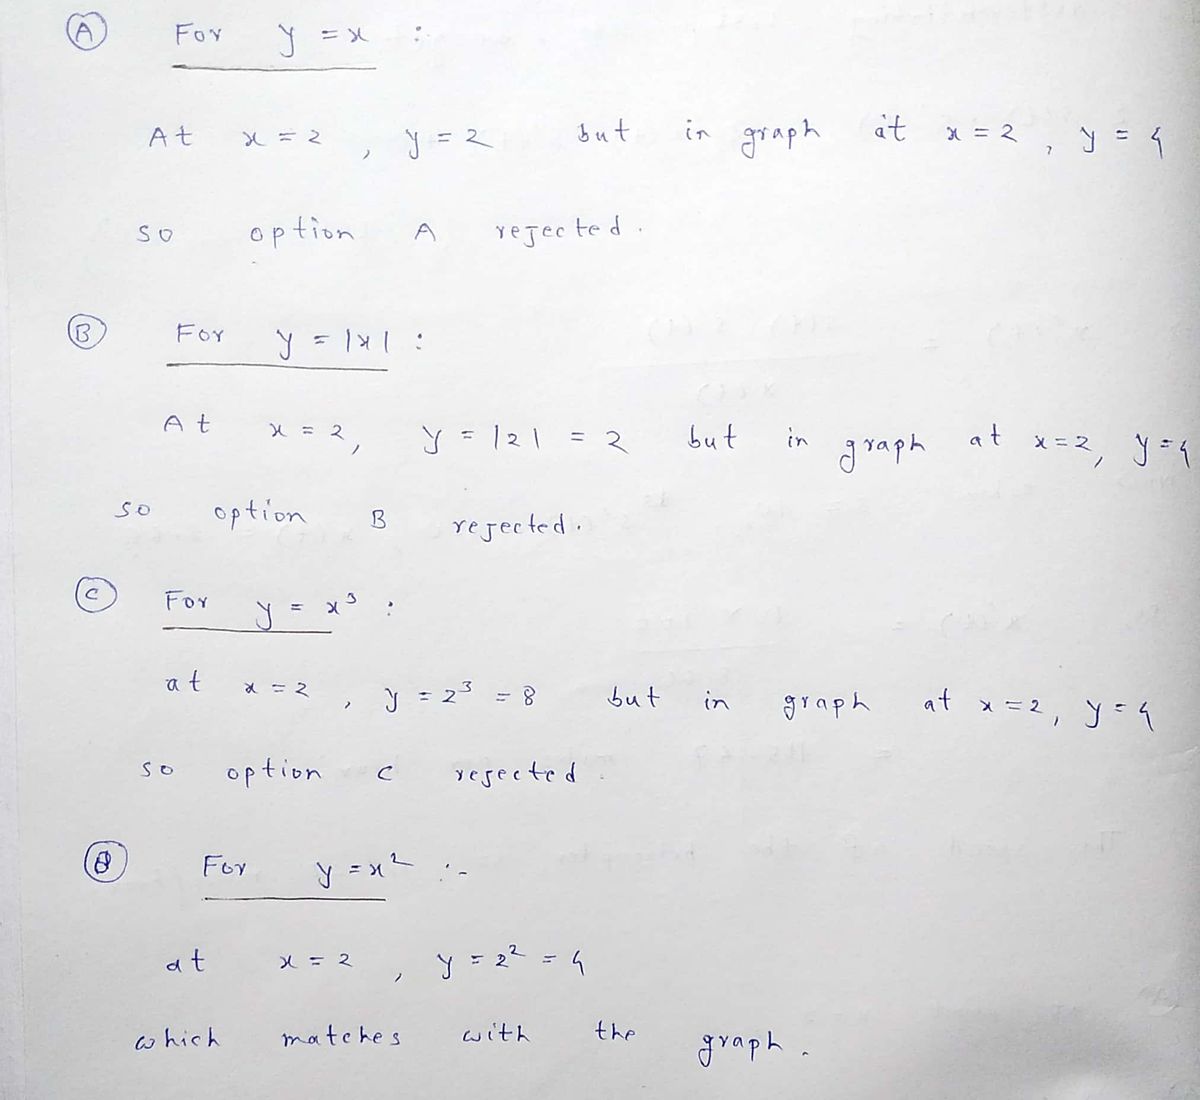 A For y = x :
At x = 2 , y = 2 but in graph at x = 2 , y = 4
so option A rejected .
B For y = |x| :
At x = 2 , y = |2| = 2 but in graph at x = 2 , y = 4
so option B rejected .
C For y = x³ :
at x = 2 , y = 2³ = 8 but in graph at x = 2 , y = 4
so option C rejected .
For y = x² :-
at x = 2 , y = 2² = 4
which matches with the graph .